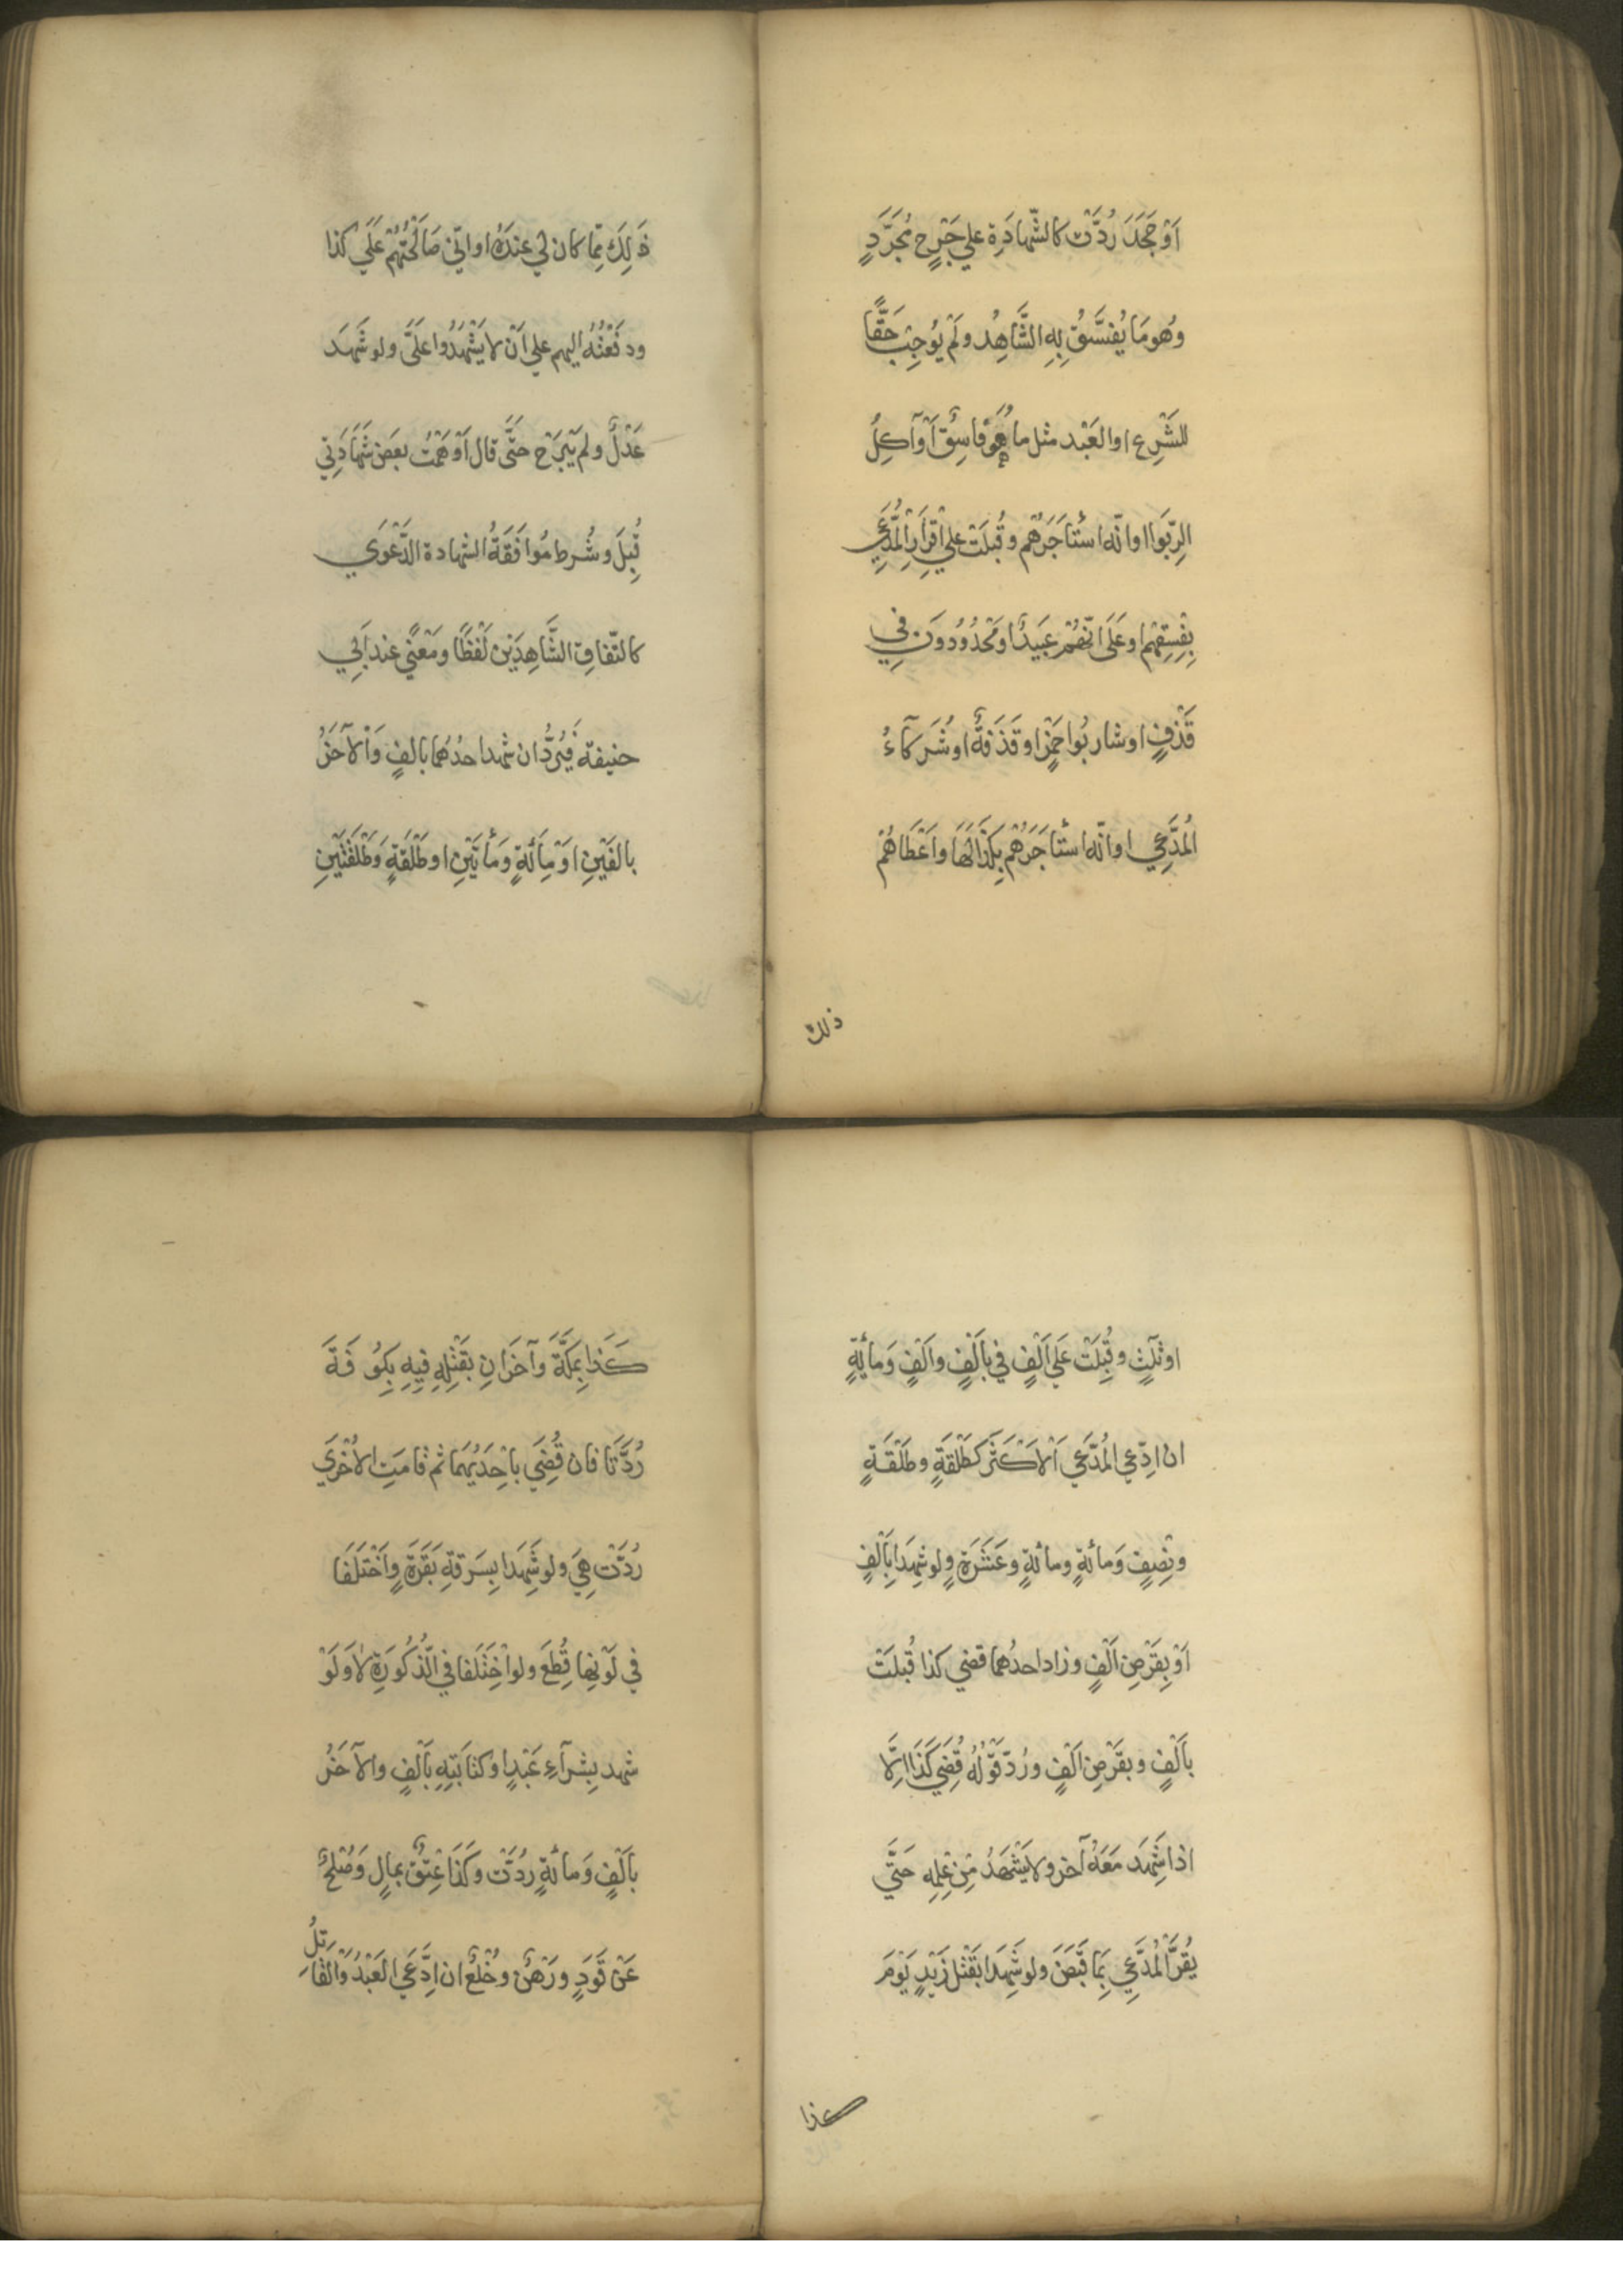 اَوْ جَحَدَ رُدَّتْ كالشَّهادَةِ علي جَرْحٍ مُجَرَّدٍ
وهُومَا يُفَسَّقُ بِهِ الشَّاهِدُ ولَمْ يُوجِبْ حَقًّا
للشَّرِع اوالعَبْد مثل ما هُوَ فاسِقٌ اَوْ آكِلُ
الرِّبَوَا اوانّه استأجَرَهُم وقُبلَتْ علي اقِرَارِ المُدَّعِي
بِفِسقِهِم وعَلَى انّهُمْ عَبيدٌ اومَحْدُودونَ فِي
قَذْفٍ اوشاربُوا خَمْرٍ اوقَذَفةٌ اوشُرَكآءُ
المُدَّعِي اوانّه استأجَرَهُم بِكَذَا لَهَا واَعْطَاهُمْ
ذلك
ذَلِكَ مِمَّا كان لي عندَهُ اواتّي صَالَحْتُهُمْ عَلَي كذا
ودفَعْتُهُ اليهم علي اَنْ لا يَشْهَدُوا عَلَيَّ ولو شَهِدَ
عَدْلٌ ولم يَبْرَحْ حَتَّي قال اَوْهَمْتُ بعَضَ شَهَادَتِي
قُبِلَ وشُرط مُوافَقَةُ الشهادة الدَّعْوَي
كالتّفاقِ الشَّاهِدَيْن لَفْظًا ومَعْنًي عند اَبي
حنيفة فَيُرَدُّ ان شهد احدُهما بالفٍ وَاْلآخَرُ
بالفَيْنِ اوْمِأئَةٍ وَمأتَيْنِ اوطَلْقَةٍ وَطَلْقَتَيْنِ
اوثلثٍ وقُبِلَتْ عَلَي اَلْفٍ في بأَلْفٍ واَلْفٍ وَمائةٍ
ان ادّعي المُدَّعِي اْلاَكْثَرَ كطَلْقَةٍ وطَلْقَةٍ
ونِصِفٍ وَمائةٍ ومائةٍ وعَشَرَةٍ ولو شهِدَا بِاَلْفٍ
اَوْ بِقَرْضِ اَلْفٍ وزاد احدُهما قضي كذا قُبلَتْ
باَلْفٍ وبقَرْضِ اَلْفٍ ورُدّ قَوْلُهُ قُضِيَ كَذَا اِلَّا
اذا شَهِدَ مَعَهُ آخر ولا يَشْهَدُ مَنْ عَلِمِه حَتَّي
يُقرَّ المُدَّعِي بِمَا قَبَضَ ولو شَهِدَا بقَتْل زَيْدٍ يَوْمَ
كذا
كَذا بِمَكَّةَ وآخَرَانِ بقَتْلِهِ فِيهِ بِكُوفَةَ
رُدَّتَا فان قُضِيَ باِحْدَيْهِمَا ثم قامَتِ الاُخْرَي
رُدَّتْ هِيَ ولو شَهِدَا بِسَرقةِ بَقَرَةٍ وَاخْتَلَفَا
في لَوْنِها قُطِعَ ولو اخْتَلَفا في الذُّكُورَةِ لا وَلَوْ
شهد بِشرآءِ عَبْدٍ اوكتابَتِهِ باَلْفٍ والآخَرُ
باَلْفٍ وَمائةٍ رُدَّتْ وَكَذَا عِتْقٌ بمالٍ وَصُلحٌ
عَنْ قَوَدٍ ورَهْنٌ وخُلْعٌ ان ادَّعَي العَبْدُ وَالْقاتِلُ